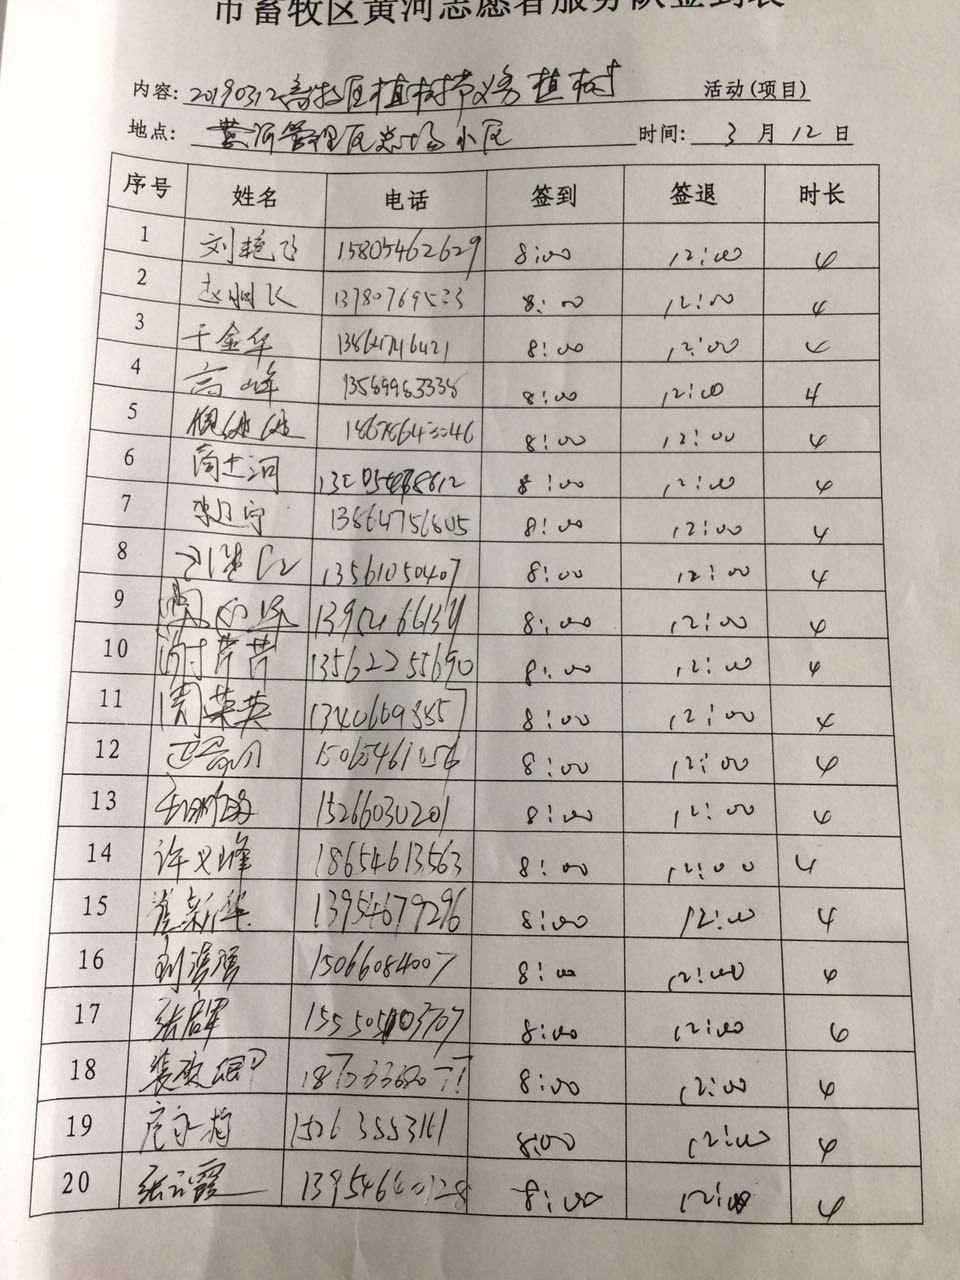 市畜牧区黄河志愿者服务队签到表
内容: 20190312畜牧区植树节义务植树 活动(项目)
地点: 黄河管理区总场小区 时间: 3 月 12 日
序号 姓名 电话 签到 签退 时长
1 刘艳飞 15805462629 8:00 12:00 4
2 13780769533 8:00 12:00 4
3 于金华 13864746421 8:00 12:00 4
4 高峰 13589983338 8:00 12:00 4
5 8:00 12:00 4
6 8:00 12:00 4
7 13864756805 8:00 12:00 4
8 13561050407 8:00 12:00 4
9 8:00 12:00 4
10 13562255690 8:00 12:00 4
11 周英英 13406098557 8:00 12:00 4
12 15065461056 8:00 12:00 4
13 15266030201 8:00 12:00 4
14 许义峰 18654613563 8:00 12:00 4
15 崔新华 13954679296 8:00 12:00 4
16 15066084007 8:00 12:00 4
17 8:00 12:00 4
18 8:00 12:00 4
19 15263553161 8:00 12:00 4
20 张云霞 8:00 12:00 4